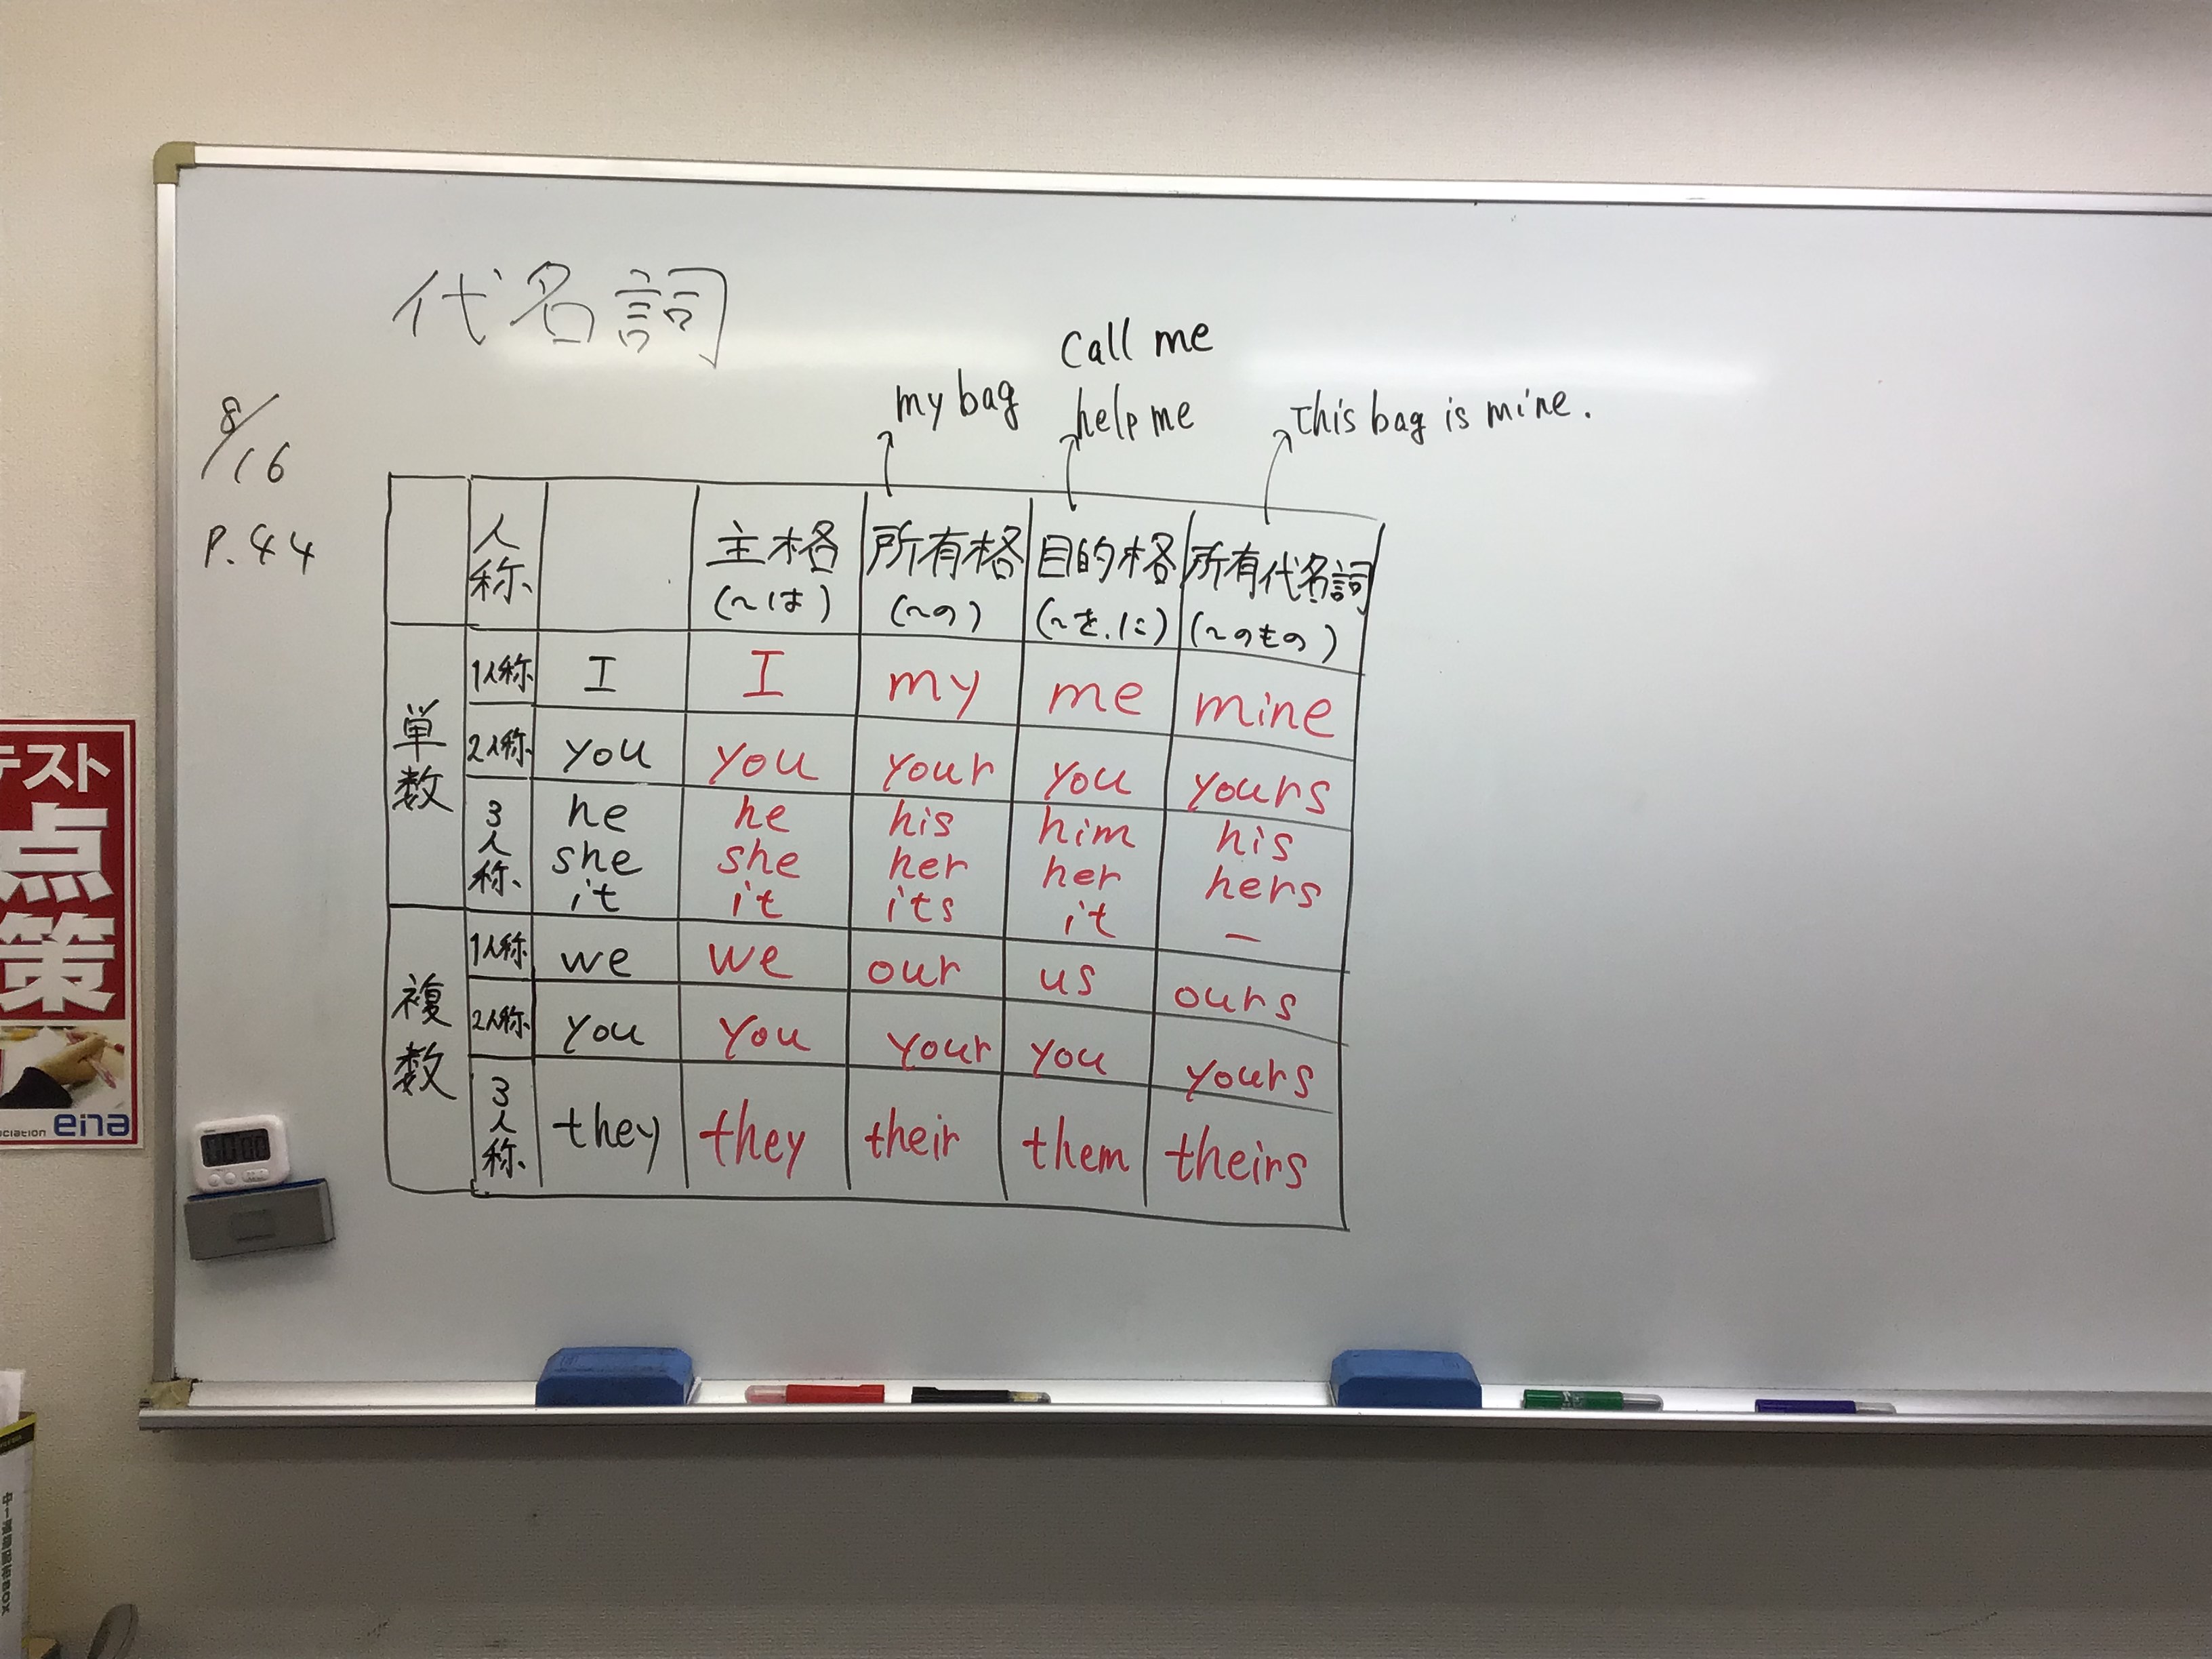 代名詞
8/16
P.44
my bag
call me
help me
This bag is mine.
人称 主格 所有格 目的格 所有代名詞
(~は) (~の) (~を、に) (~のもの)
単数
1人称 I I my me mine
2人称 you you your you yours
3人称 he he his him his
she she her her hers
it it its it —
複数
1人称 we we our us ours
2人称 you you your you yours
3人称 they they their them theirs
テスト
点
策
ciation ena